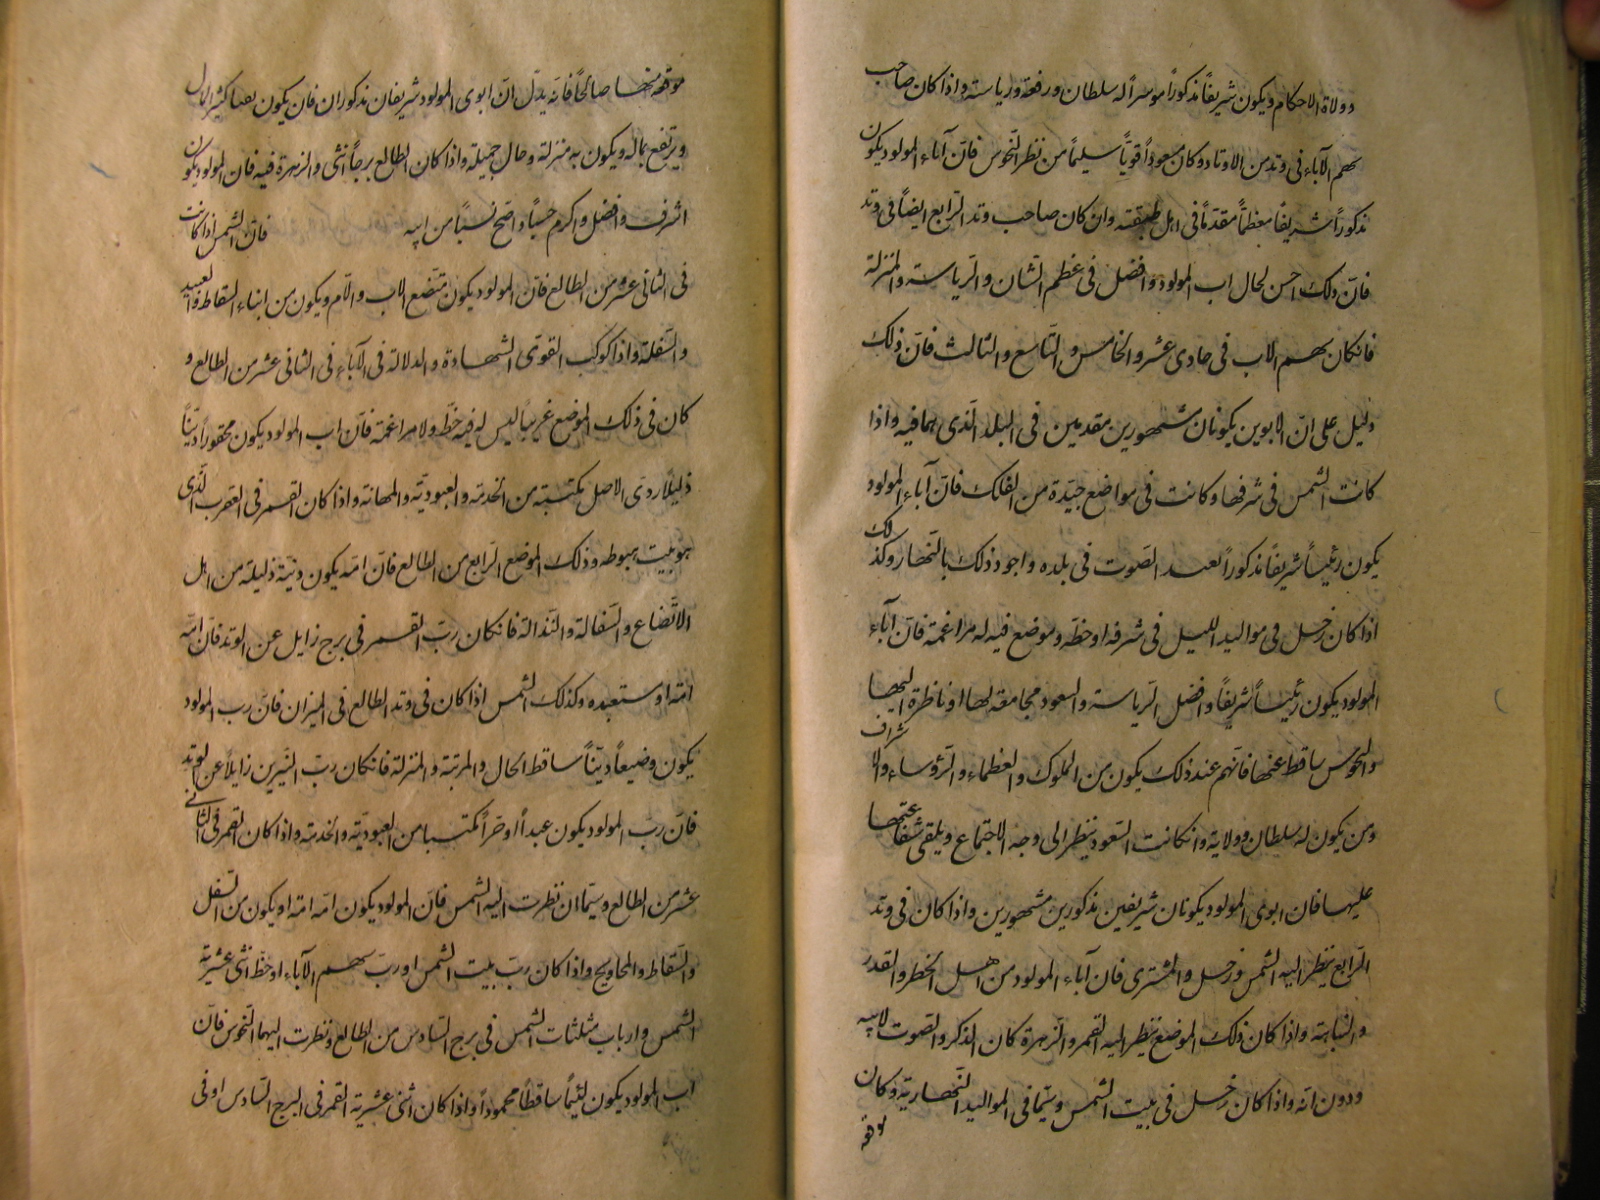 دولاة الاحكام ويكون شريفاً مذكوراً موسراً له سلطان ورفعة ورياسة واذا كان صاحب
سهم الآباء فى وتد من الاوتاد وكان مسعوداً قوياً سليماً من نظر النحوس فانّ آباء المولود يكون
مذكوراً شريفاً معظماً مقدماً فى اهل طبقته وان كان صاحب وتد الرابع ايضاً فى وتد
فانّ ذلك احسن لحال اب المولود وافضل فى عظم الشان والرياسة والمنزلة
فانكان سهم الاب فى حادى عشر والخامس والتاسع والثالث فانّ ذلك
دليل على انّ الابوين يكونان مشهورين مقدمين فى البلد الّذى هما فيه واذا
كانت الشمس فى شرفها وكانت فى مواضع جيّدة من الفلك فانّ آباء المولود
يكون رئيساً شريفاً مذكوراً بعيد الصوت فى بلده واجود ذلك بالنهار وكذلك
اذا كان زحل فى مواليد الليل فى شرفه او حظّه وموضع فيه له مزاعمة فانّ آباء
المولود يكون رئيساً شريفاً وافضل الرياسة والسعود مجامعة لها او ناظرة اليها
والنحوس ساقط عنها فانهم عند ذلك يكون من الملوك والعظماء والرؤساء والاشراف
ومن يكون له سلطان وولاية وانكانت السعود ينظر الى وجه الاجتماع ويلقى شعاعها
عليها فان ابوى المولود يكونان شريفين مذكورين مشهورين واذا كان فى وتد
الرابع ينظر اليه الشمس وزحل والمشترى فان آباء المولود من اهل الخطر والقدر
والنباهة واذا كان ذلك الموضع ينظر اليه القمر والزهرة كان الذكر والصوت لابيه
ودون امّه واذا كان زحل فى بيت الشمس وسيّما فى المواليد النهارية وكان
موقعه
موقعه منها صالحاً فانّه يدلّ انّ ابوى المولود شريفان مذكوران فان يكون بعيدا كثير المال
ويرتفع بماله ويكون به منزلة وحال جميلة واذا كان الطالع برجاً انثى والزهرة فيه فان المولود يكون
اشرف وافضل واكرم حسباً واصحّ نسباً من ابيه فانّ الشمس اذا كانت
فى الثانى عشر من الطالع فانّ المولود يكون متضع الاب والامّ ويكون من ابناء السقاط والعبيد
والسفلة واذا كوكب القوى الشهادة والدلالة فى الآباء فى الثانى عشر من الطالع و
كان فى ذلك الموضع غريباً ليس له فيه حظّ ولا مزاعمة فانّ اب المولود يكون محقوراً دنيّاً
ذليلاً ردىّ الاصل يكتسبه من الخدمة والعبوديّة والمهانة واذا كان القمر فى العقرب الّذى
هو بيت هبوطه وذلك الموضع الرابع من الطالع فانّ امّه يكون دنيّة ذليلة من اهل
الاتّضاع والسفالة والنذالة فانكان ربّ القمر فى برج زايل عن الوتد فانّ امّه
امة او مستعبده وكذلك الشمس اذا كان فى وتد الطالع فى الميزان فانّ رب المولود
يكون وضيعاً دنيّاً ساقط الحال والمرتبة والمنزلة فانكان ربّ النيّرين زايلاً عن الوتد
فانّ ربّ المولود يكون عبداً او حرّاً مكتسبا من العبوديّة والخدمة واذا كان القمر فى الثانى
عشر من الطالع وسيّما ان نظرت اليه الشمس فانّ المولود يكون امّه امة او يكون من السفل
والسقاط والمحاويج واذا كان ربّ بيت الشمس او ربّ سهم الآباء او حظّ اثنى عشريّة
الشمس وارباب مثلثات الشمس فى برج السادس من الطالع ونظرت اليها النحوس فانّ
اب المولود يكون لئيماً ساقطاً محموداً واذا كان اثنى عشرية القمر فى البرج السادس او فى